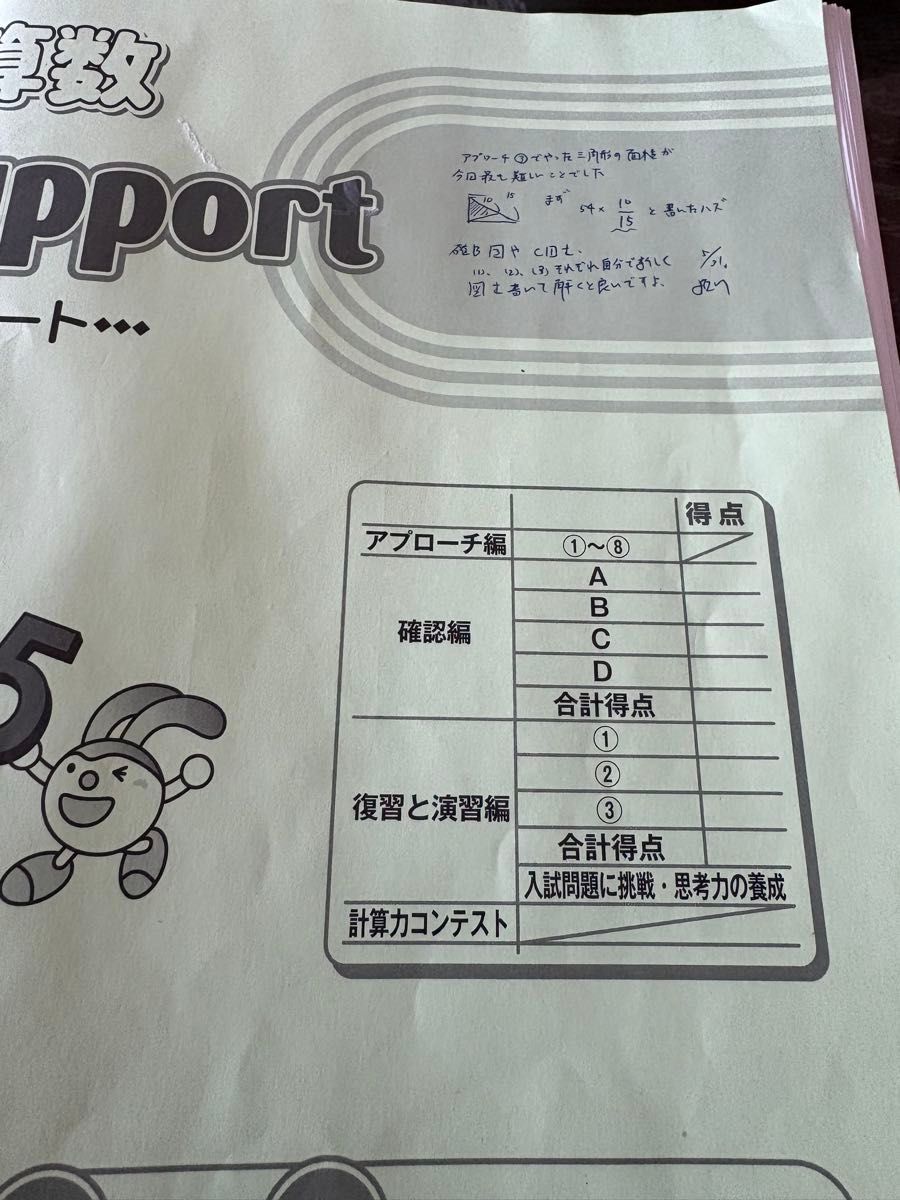 算数
upport
ート…
アプローチ⑦でやった三角形の面積が
今回最も難しいことでした
10 15 まず 54× 10/15 と書いたハズ
確B図やC図も、
(1)、(2)、(3)それぞれ自分で新しく 5/21
図を書いて解くと良いですよ。
得点
アプローチ編 ①〜⑧
確認編
A
B
C
D
合計得点
復習と演習編
①
②
③
合計得点
入試問題に挑戦・思考力の養成
計算力コンテスト
5